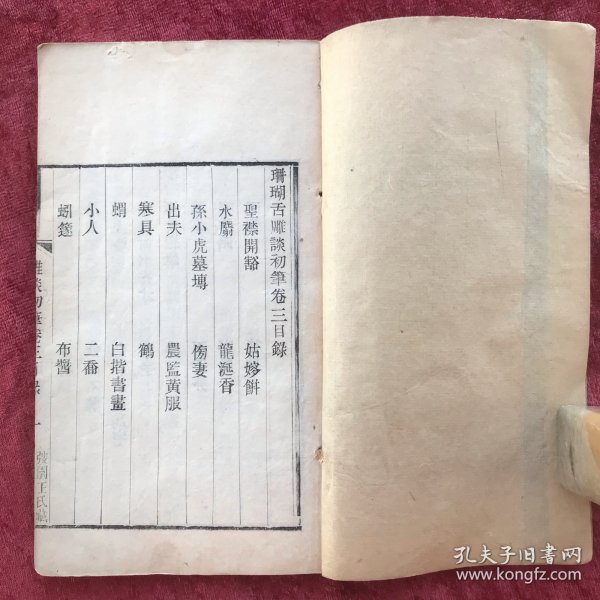 珊瑚舌雕談初筆卷三目錄
聖襟開豁　姑嫜餅
水麝　龍涎香
孫小虎墓塼　侚妻
出夫　農監黄服
寒具　鶴
蜎　白揩書畫
小人　二喬
蚓篴　布醬
雕談初筆卷三目录
一
弢園王氏
孔夫子旧书网
www.kongfz.com